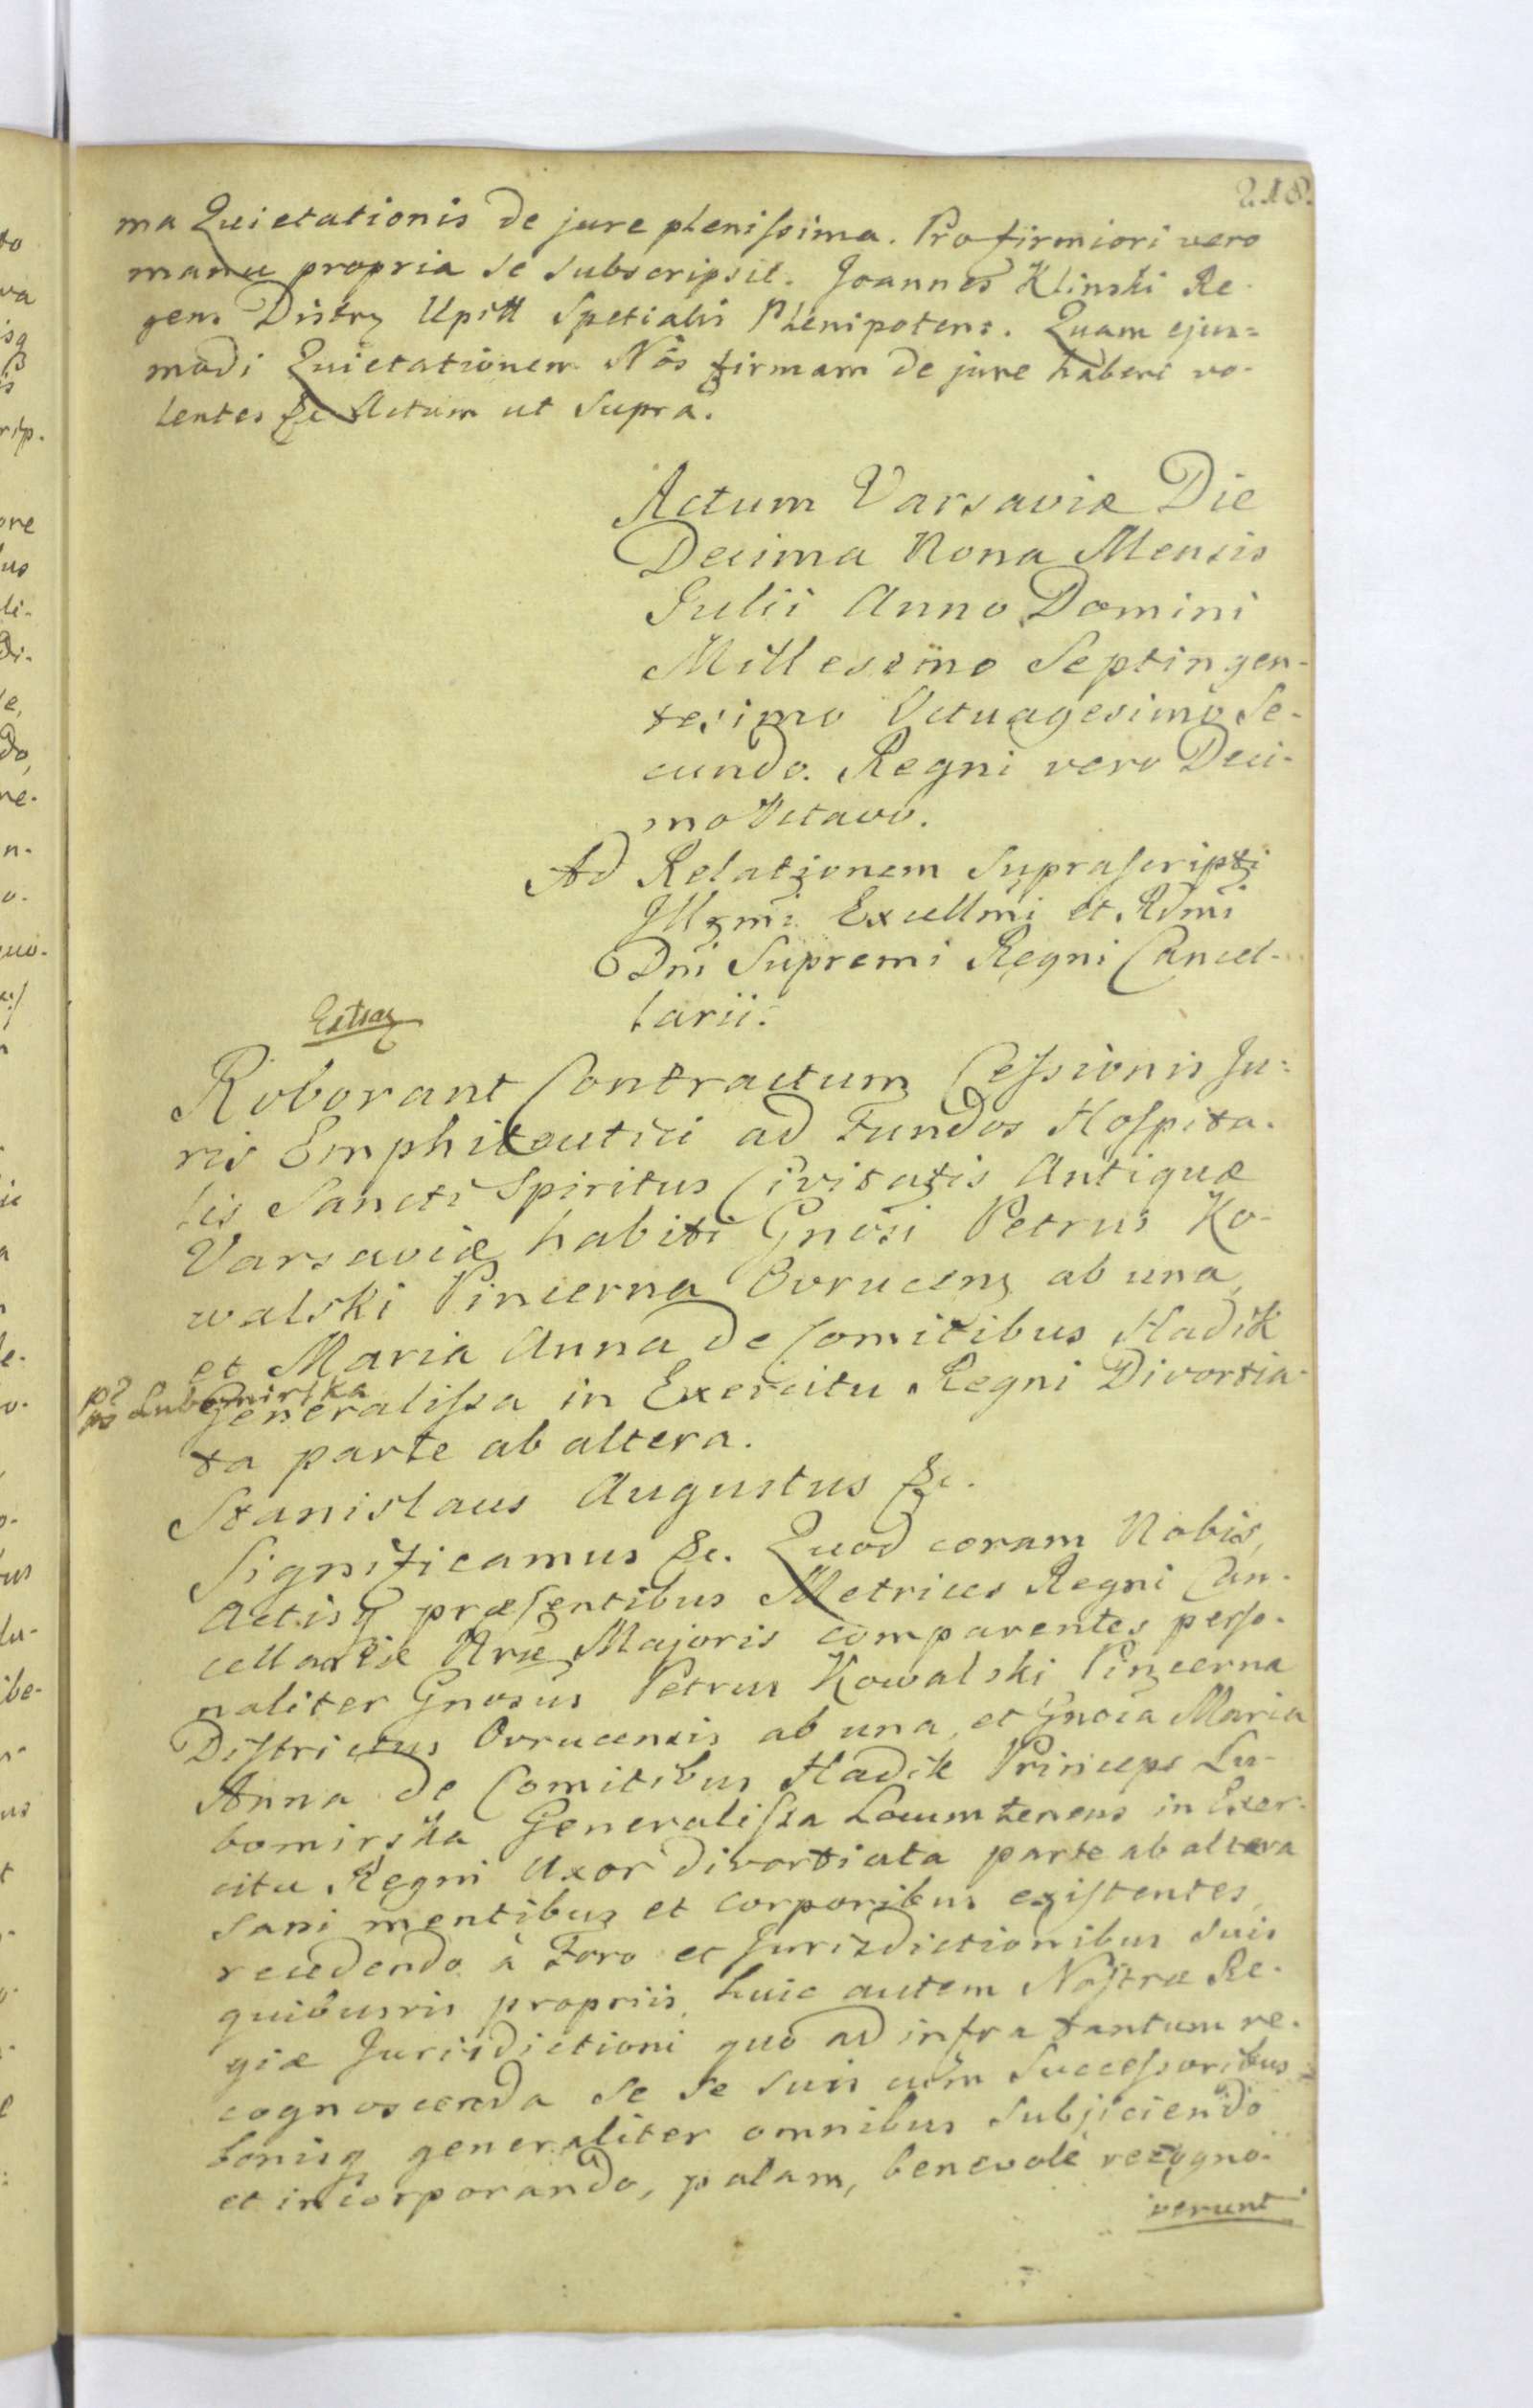 218.
ma Quietationis de jure plenissima. Pro firmiori vero
manu propria se subscripsit. Joannes Klinski Re-
gens Distrz Upitt Spetialis Plenipotens. Quam ejus=
modi Quietationem Nos firmam de jure haberi vo-
lentes &c Actum ut supra.
Actum Varsaviæ Die
Decima Nona Mensis
Julii Anno Domini
Millesimo Septingen-
tesimo Octuagesimo Se-
cundo. Regni vero Deci-
mo Octavo.
Ad Relationem suprascripti
Illmi Excellmi et Rdmi
Dni Supremi Regni Cancel-
larii.
Extraz
Roborant Contractum Cessionis Ju=
ris Emphiteutici ad Fundos Hospita-
lis Sancti Spiritus Civitatis Antiquæ
Varsaviæ habiti Gnosi Petrus Ko-
walski Pincerna Ovrucens ab una
et Maria Anna de Comitibus Hadik
ps Lubomirska
Generalissa in Exercitu Regni Divortia-
ta parte ab altera.
Stanislaus Augustus &c.
Significamus &c. Quod coram Nobis,
Actisq præsentibus Metrices Regni Can-
cellariæ Nræ Majoris comparentes perso-
naliter Gnosus Petrus Kowalski Pincerna
Districtus Ovrucensis ab una, et Gnosa Maria
Anna de Comitibus Hadik Princeps Lu-
bomirska Generalissa Locum tenens in Exer-
citu Regni Uxor divortiata parte ab altera
sani mentibus et corporibus existentes,
recedendo à Foro et Jurisdictionibus suis
quibusvis propriis, huic autem Nostræ Re-
giæ Jurisdictioni quo ad infra tantum re-
cognoscenda se se suis cum Successoribus
bonisq generaliter omnibus subjiciendo
et incorporando, palam, benevole recogno-
verunt